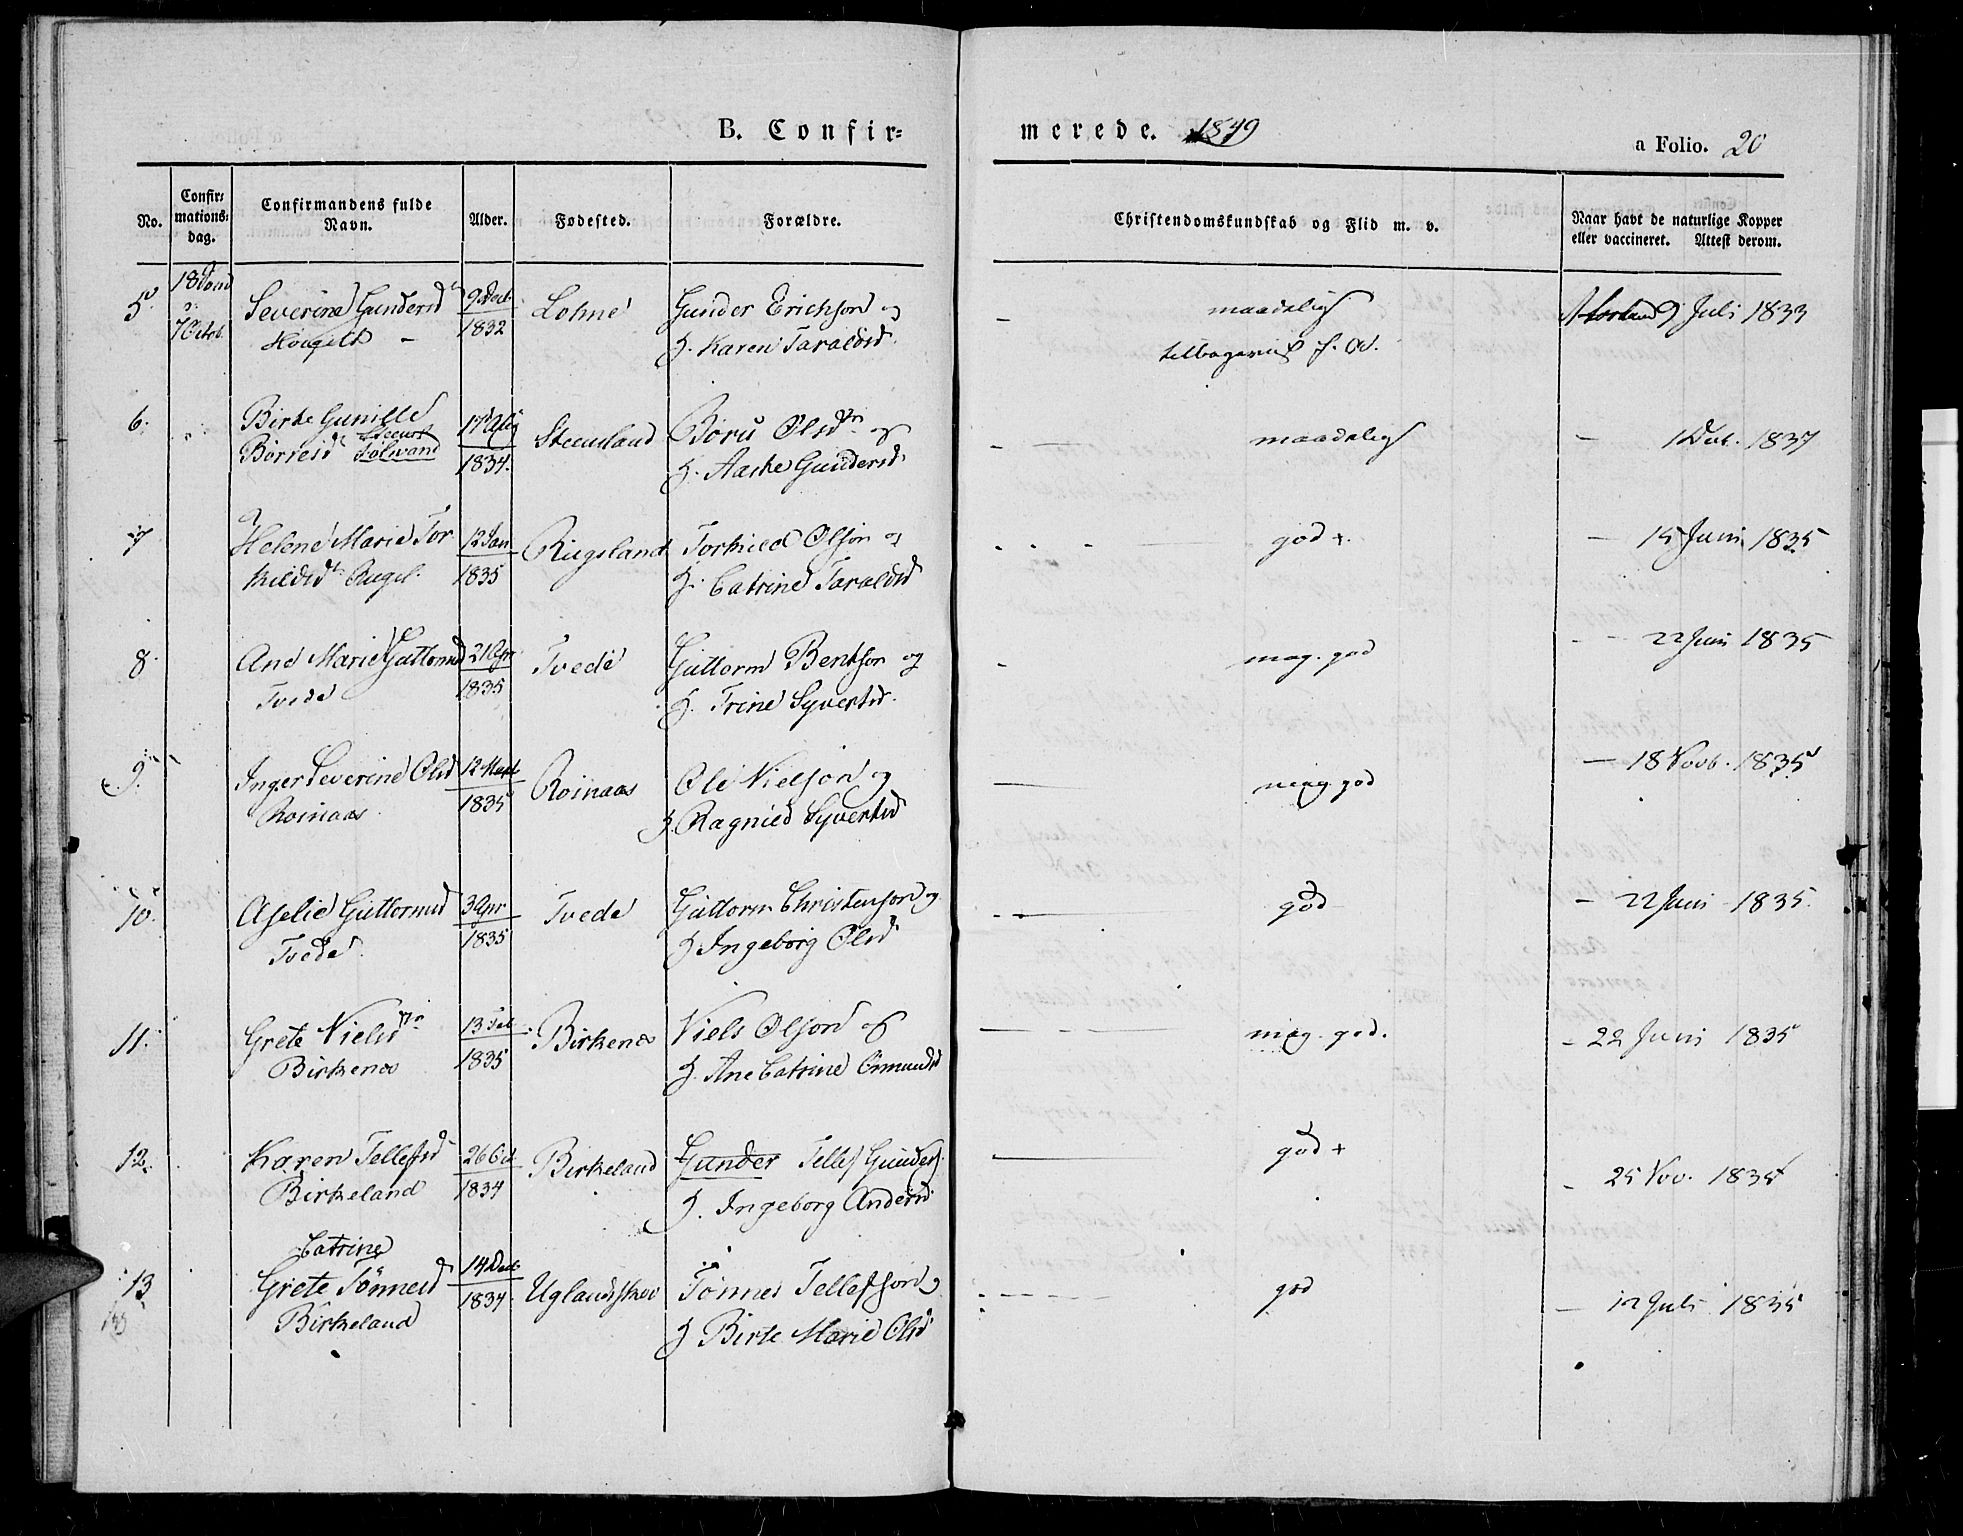 B. Confir=
merede. 1849
a Folio. 20
No.
Confir=
mations=
dag.
Confirmandens fulde
Navn.
Alder.
Fødested.
Forældre.
Christendomskundskab og Flid m. v.
Naar havt de naturlige Kopper
eller vaccineret. Attest derom.
5. 18 Sønd Severine Gundersd 9 Dec. Lohne Gunder Erichson og maadelig 9 Juli 1833
7 Octob. 1832 Karen Taraldsd.
6. Birte Gunille 17 Aug Steensland Børu Olss og maadelig 1837
Børresd Tolvand 1834. Aaste Gundersd
7 Helene Marie Tor 12 Jan Rugsland Torkild Olson og god +. 15 Juni 1835
kildsd Rugsl. 1835 Catrine Taraldsd
8 Ane Marie Guttormsd 21 Apr. Tvede Guttorm Bentson og meg. god 22 Juni 1835
Tvede 1835 Trine Syvertsd.
9. Inger Severine Olsd 12 Mart Roinaas Ole Nielson og meg. god 18 Novb. 1835
Roinaas 1835 Ragnild Syvertsd
10. Aselie Guttormsd 3 Apr Tvede Guttorm Christenson og god 22 Juni 1835.
Tvede. 1835 Ingeborg Olsd
11. Grete Nielsd 13 Feb Birkenes Niels Olson og meg. god. 22 Juni 1835
Birkenes 1835 Ane Catrine Osmundsd
12. Karen Tellefsd 26 Oct Birkeland Gunder Tellef Gunders. god + 25 Nov. 1835
Birkeland 1834 Ingeborg Andersd.
Catrine
13 Grete Tønnesd 14 Dec Uglandskov Tønnes Tellefson og god 12 Juli 1835
Birkeland 1834. Birte Marie Olsd